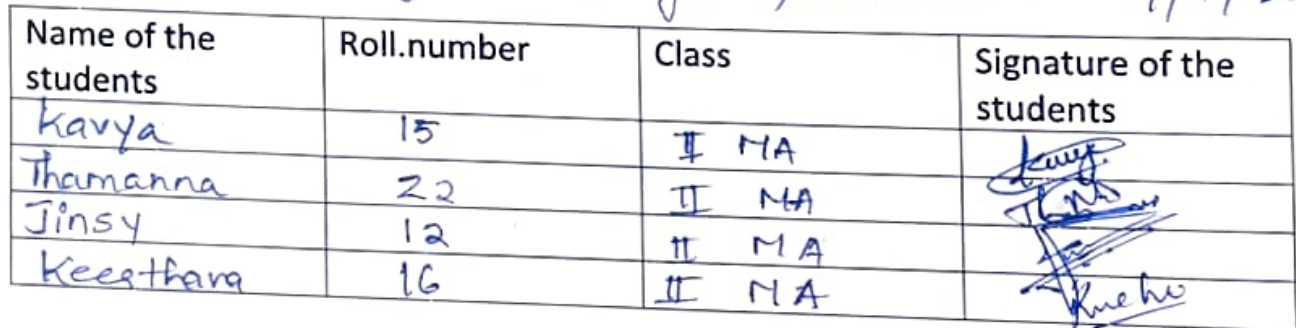 Name of the students Roll.number Class Signature of the students
Kavya 15 II MA
Thamanna 22 II MA
Jinsy 12 II MA
Keerthana 16 II MA